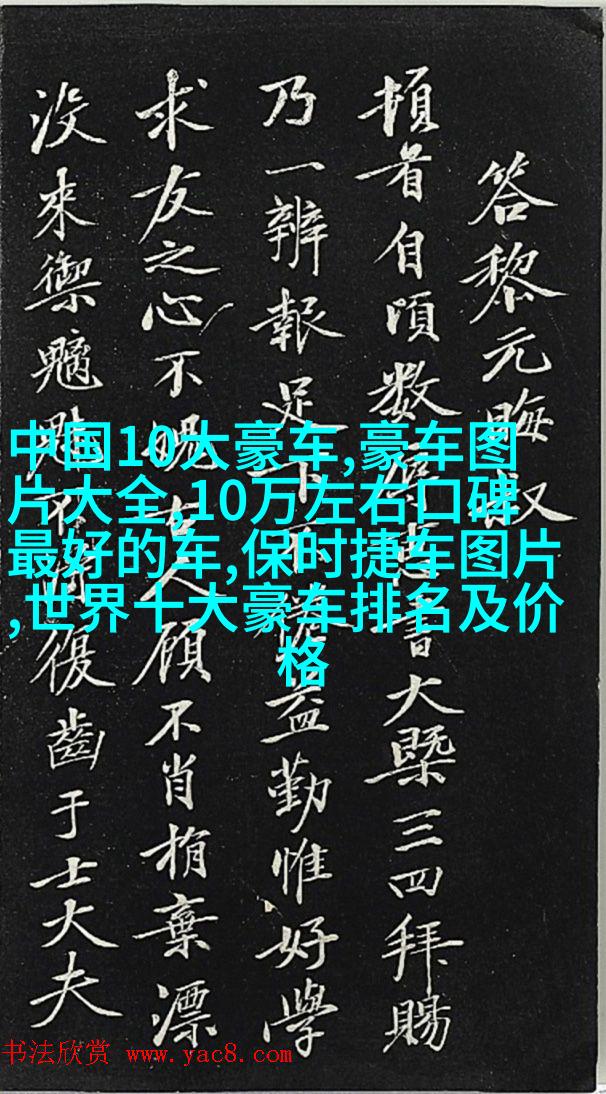 答黎元晦叔
頓首自頃数書大槩三四拜賜
乃一辨報足下不益勤惟好學
求友之心不愧古人顧不肖捐棄漂
没來禦魑魅不復齒于士大夫
中国10大豪车,豪车图
片大全,10万左右口碑
最好的车,保时捷车图片
,世界十大豪车排名及价
格
书法欣赏 www.yac8.com